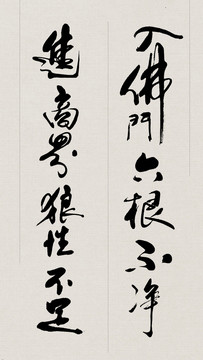 入佛門六根不净
進商界狼性不足